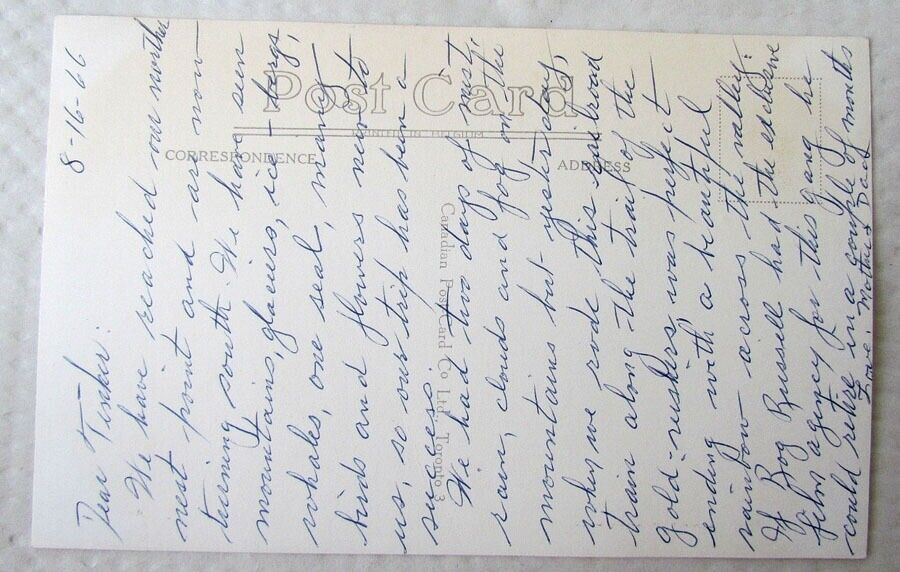 8-16-66
Dear Tinker:
We have reached our north
nest point and are now
turning south. We have seen
mountains, glaciers, ice-bergs,
whales, one seal, many
birds and flowers new to
us, so our trip has been a
success.
We had two days of mist,
rain, clouds and fog on the
mountains but yesterday,
when we rode this railroad
train along the trail of the
gold-rushers, was perfect
ending with a beautiful
rainbow across the valley.
If Bog Russell had the exclusive
film agency for this gang he
could retire in a couple of months
Love, Mother & Dad
Post Card
CORRESPONDENCE
ADDRESS
Canadian Post Card Co. Ltd., Toronto 3